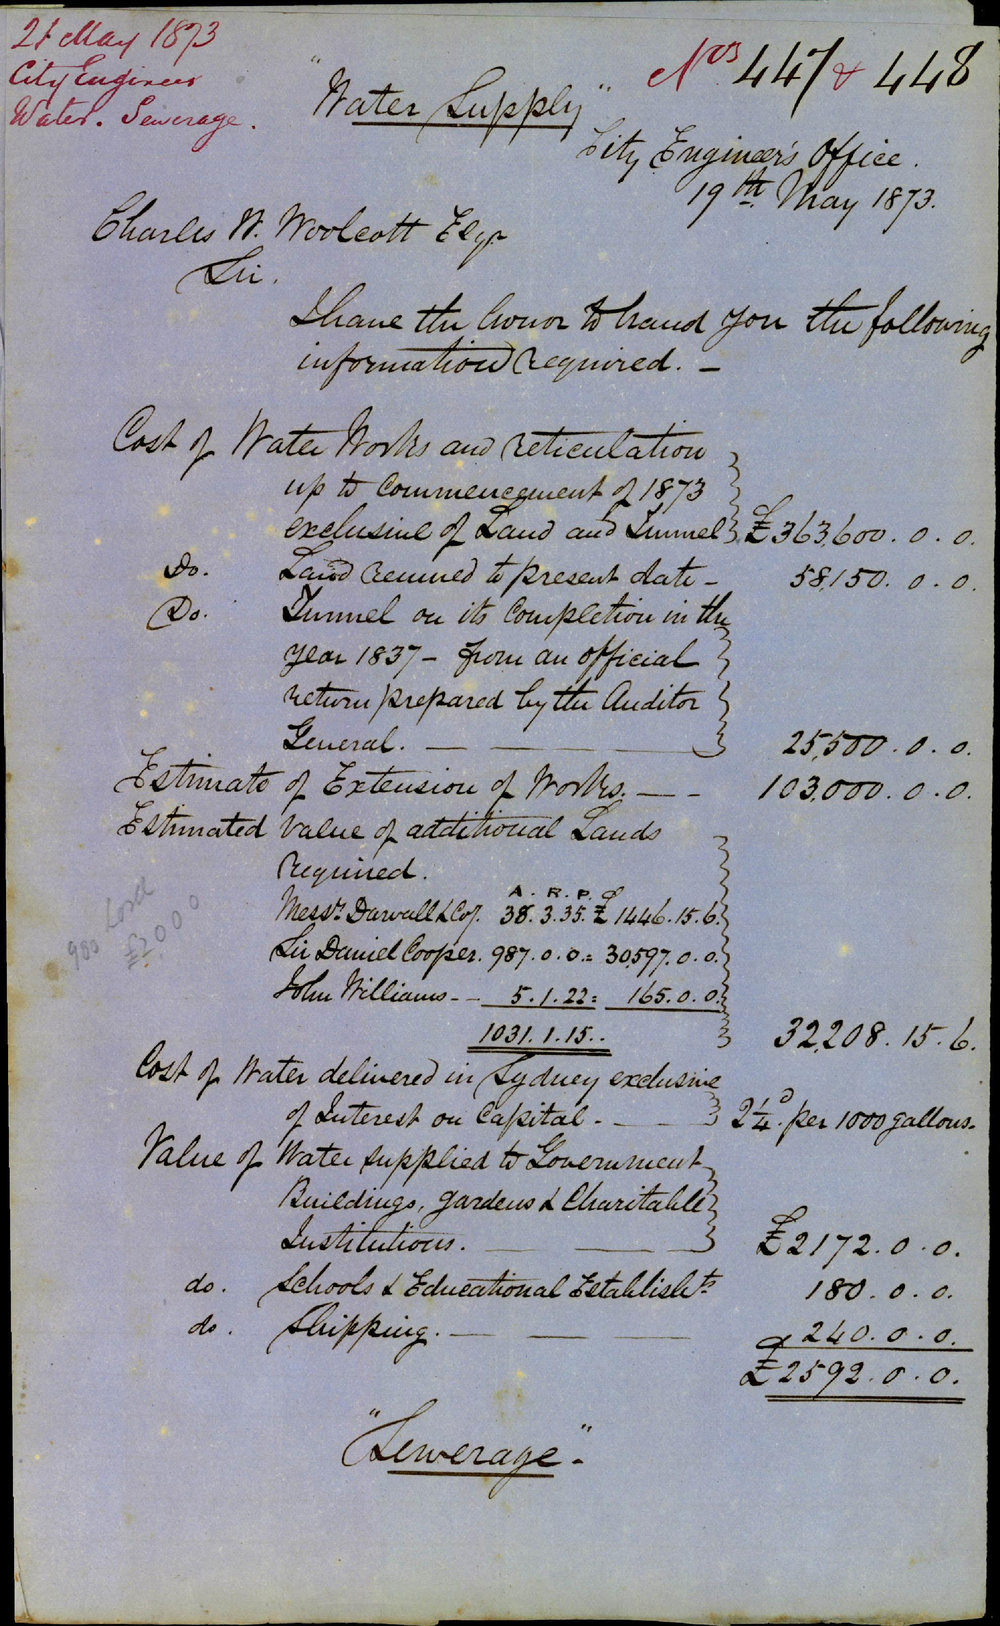 21 May 1873
City Engineer
Water. Sewerage.
Nos 447 & 448
"Water Supply"
City Engineer's Office.
19th May 1873.
Charles H. Woolcott Esqr
Sir.
I have the honor to hand you the following
information required. —
Cost of Water Works and reticulation
up to Commencement of 1873
exclusive of Land and Tunnel £363,600. 0. 0.
Do. Land resumed to present date — 58,150. 0. 0.
Do. Tunnel on its Completion in the
year 1837 — from an official
return prepared by the Auditor
General. — — 25,500. 0. 0.
Estimate of Extension of Works. — — 103,000. 0. 0.
Estimated Value of additional Lands
required.
A. R. P. £
Messrs Darvall & Coy. 38. 3. 35. £1446. 15. 6.
Sir Daniel Cooper. 987. 0. 0. = 30,597. 0. 0.
John Williams - - 5. 1. 22 = 165. 0. 0.
1031. 1. 15.. 32,208. 15. 6.
Cost of Water delivered in Sydney exclusive
of Interest on Capital. — 2¼d. per 1000 gallons.
Value of Water supplied to Government
Buildings, gardens & Charitable
Institutions. — — £2172. 0. 0.
do. Schools & Educational Establishts 180. 0. 0.
do. Shipping. — — — 240. 0. 0.
£2592. 0. 0.
"Sewerage".